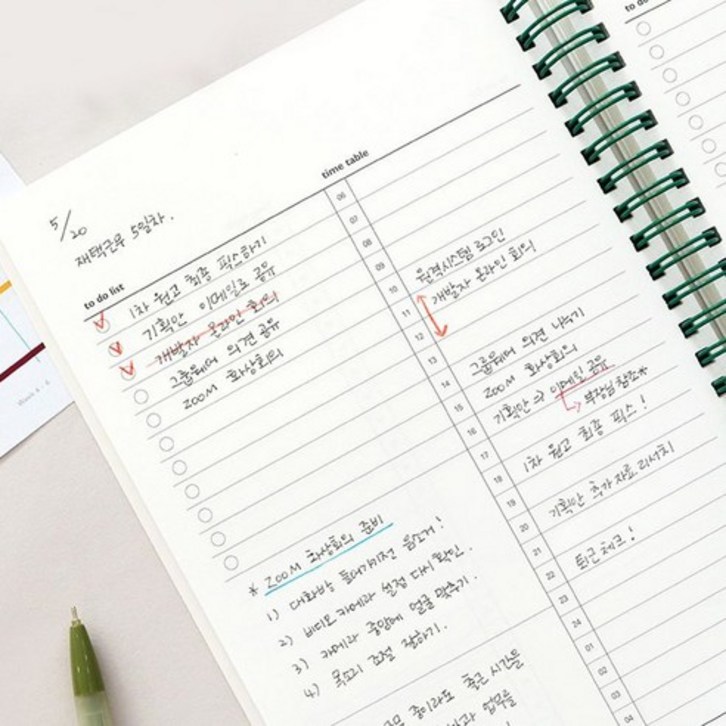 5/20
재택근무 5일차.
to do list
1차 원고 최종 픽스하기
기획안 이메일로 공유
개발자 온라인 회의
그룹웨어 의견 공유
ZOOM 화상회의
* ZOOM 화상회의 준비
1) 대화방 들어가기전 음소거!
2) 비디오 카메라 설정 다시 확인.
3) 카메라 중앙에 얼굴 맞추기.
4) 목소리 조절 잘하기.
중이라도 출근 시간을
업무를
time table
06
07
08
09
원격시스템 로그인
10
개발자 온라인 회의
11
12
13
그룹웨어 의견 나누기
14
ZOOM 화상회의
15
기획안 이메일 공유
부장님 참조*
16
17
1차 원고 최종 픽스!
18
19
기획안 추가 자료 리서치
20
21
퇴근 체크!
22
23
24
01
02
03
04
to do